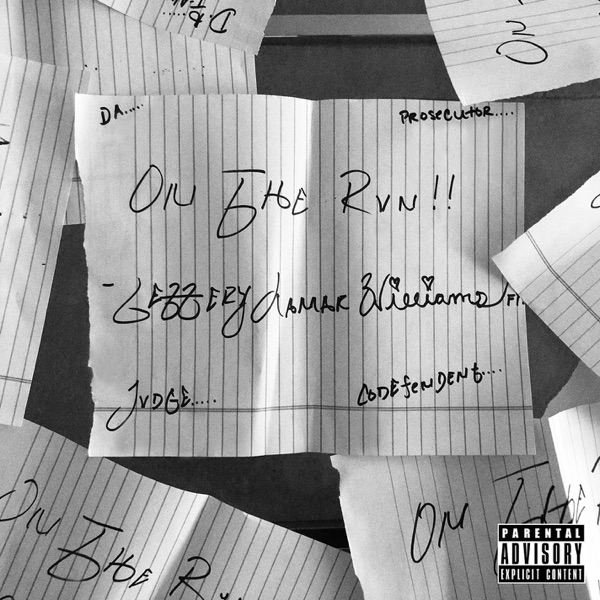 D.B.
DA.....
PROSECUTOR....
ON THE RUN!!
-GEZZERY LAMAR Williams FT.
JUDGE.....
CODEfENDENt....
ON THE R
ON THE
PARENTAL
ADVISORY
EXPLICIT CONTENT